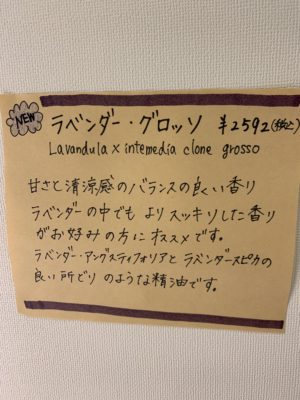 NEW
ラベンダー・グロッソ ¥2592(税込)
Lavandula x intemedia clone grosso
甘さと清涼感のバランスの良い香り
ラベンダーの中でも よりスッキリした香り
がお好みの方にオススメです。
ラベンダー・アングスティフォリアと ラベンダースピカの
良い所どりのような精油です。